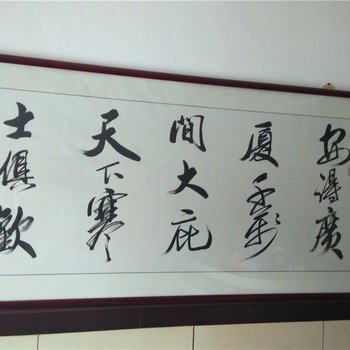 安得廣
厦千萬
間大庇
天下寒
士俱歡